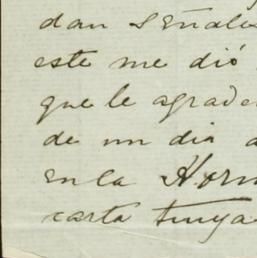 dan señale
este me dió
que le agrade
de un dia a
en la Horm
carta tuya